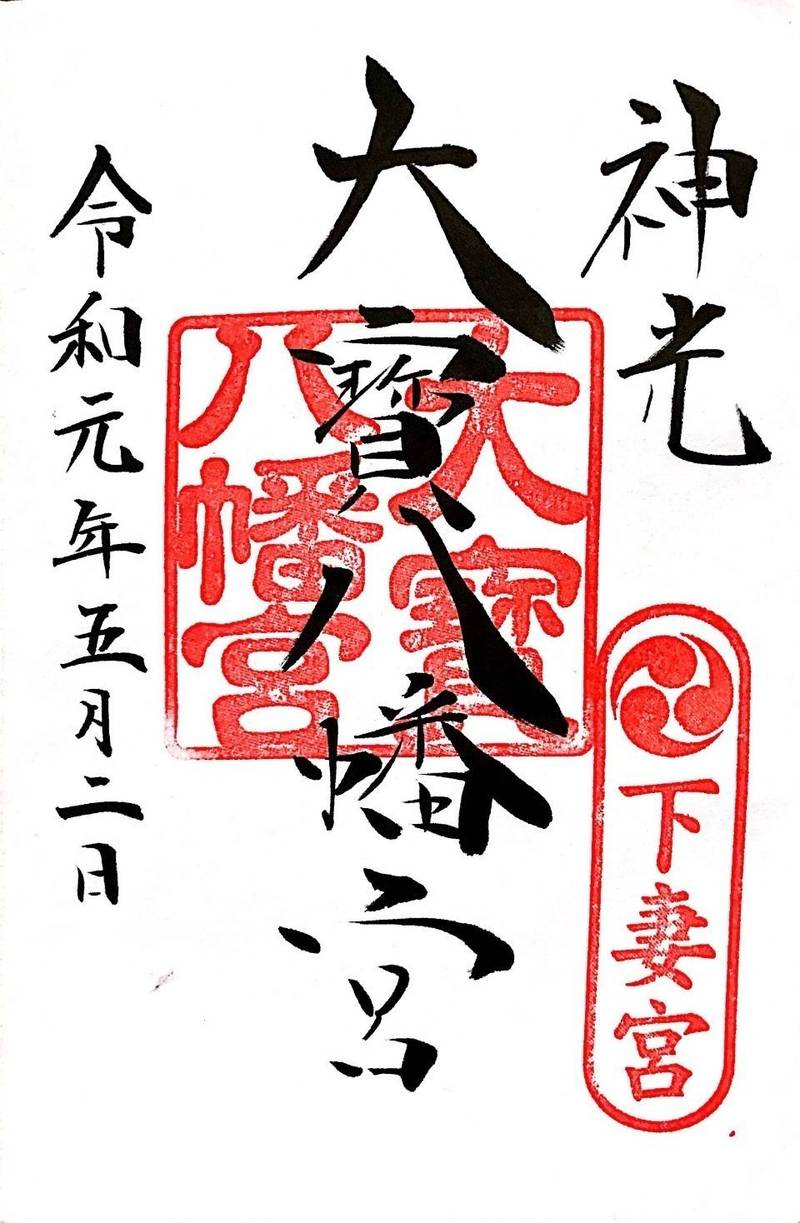 神光
下妻宮
大寳八幡宮
大寳
八幡宮
令和元年五月二日